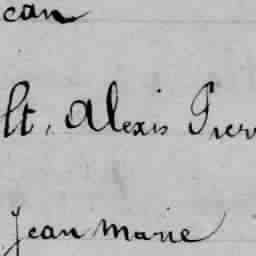 ean
lt, Alexis Pierr
Jean Marie